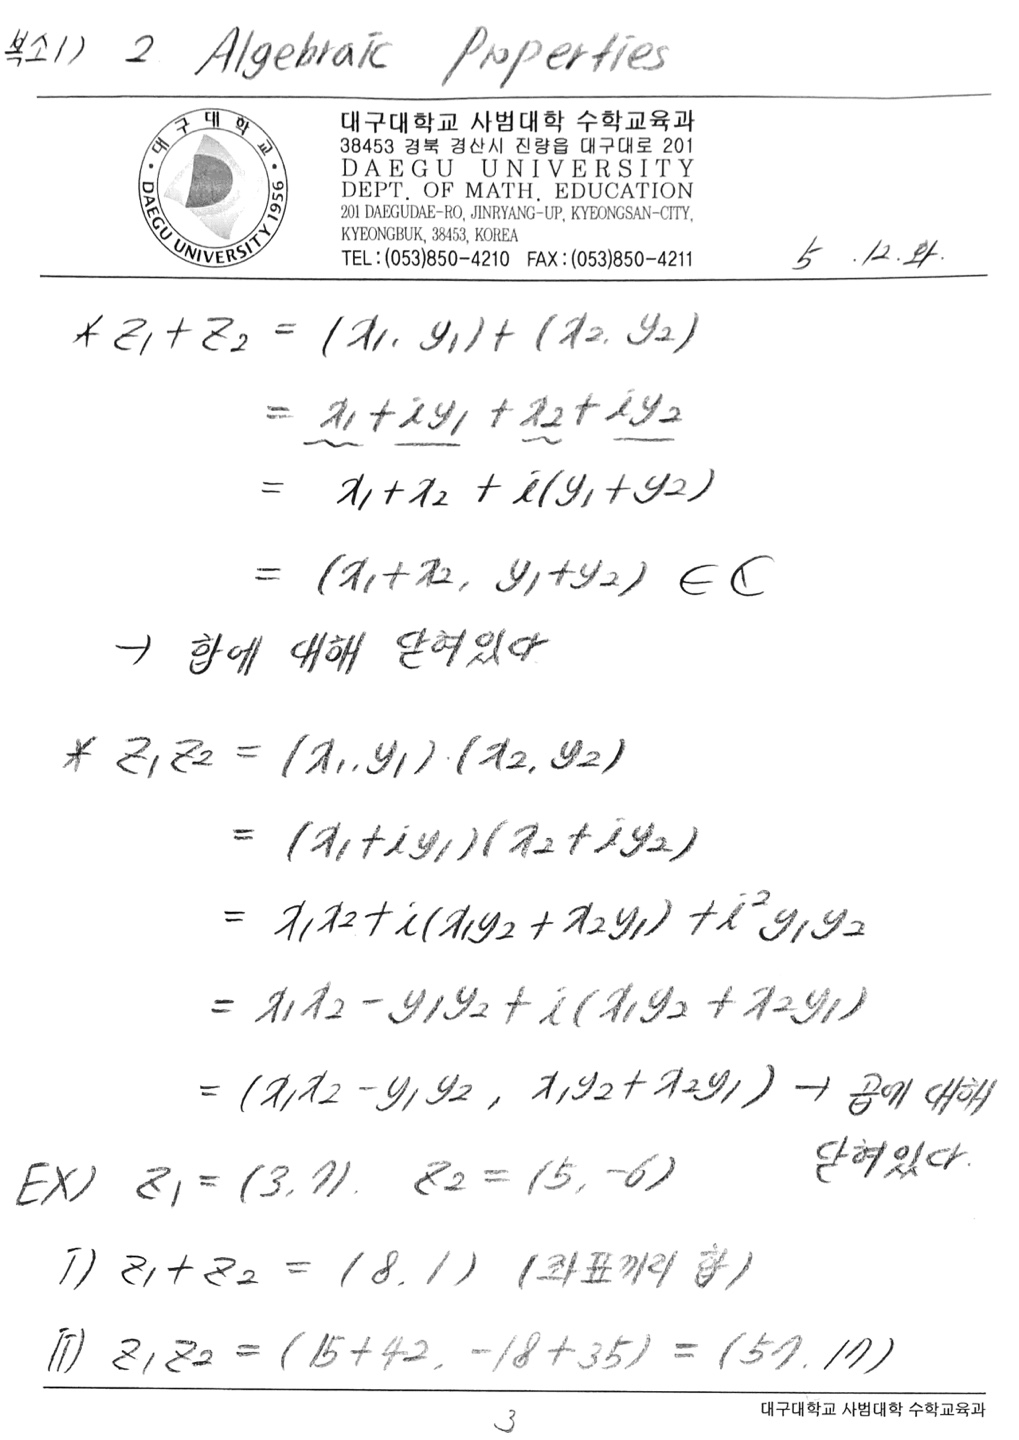 복소1) 2 Algebraic Properties
대구대학교
DAEGU UNIVERSITY 1956
대구대학교 사범대학 수학교육과
38453 경북 경산시 진량읍 대구대로 201
DAEGU UNIVERSITY
DEPT. OF MATH. EDUCATION
201 DAEGUDAE-RO, JINRYANG-UP, KYEONGSAN-CITY,
KYEONGBUK, 38453, KOREA
TEL : (053)850-4210 FAX : (053)850-4211
5 .12.화.
* z₁+z₂ = (x₁, y₁)+(x₂, y₂)
= x₁+iy₁+x₂+iy₂
= x₁+x₂ + i(y₁+y₂)
= (x₁+x₂, y₁+y₂) ∈ ℂ
→ 합에 대해 닫혀있다
* z₁z₂ = (x₁, y₁)·(x₂, y₂)
= (x₁+iy₁)(x₂+iy₂)
= x₁x₂+i(x₁y₂+x₂y₁)+i²y₁y₂
= x₁x₂-y₁y₂+i(x₁y₂+x₂y₁)
= (x₁x₂-y₁y₂, x₁y₂+x₂y₁) → 곱에 대해
닫혀있다.
EX) z₁=(3,7). z₂=(5,-6)
i) z₁+z₂ = (8,1) (좌표끼리 합)
ii) z₁z₂ = (15+42, -18+35) = (57,17)
대구대학교 사범대학 수학교육과
3